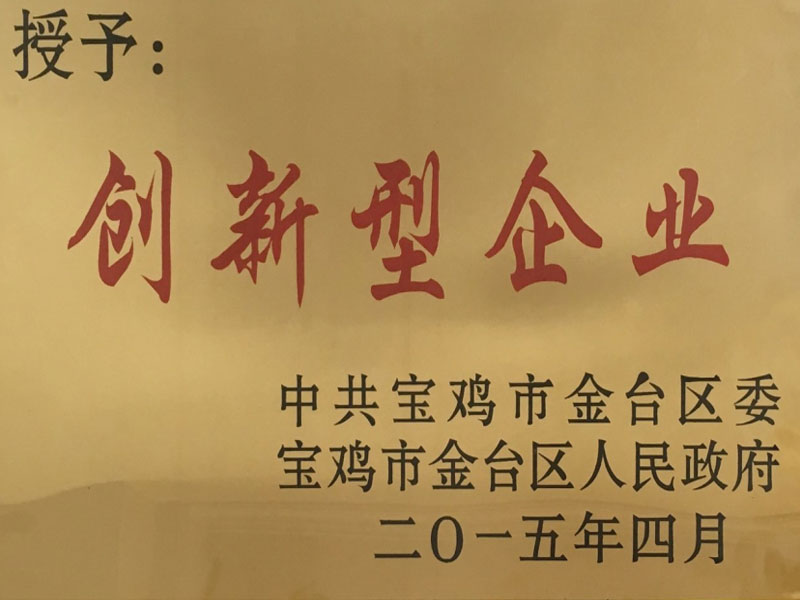 授予：
创新型企业
中共宝鸡市金台区委
宝鸡市金台区人民政府
二〇一五年四月